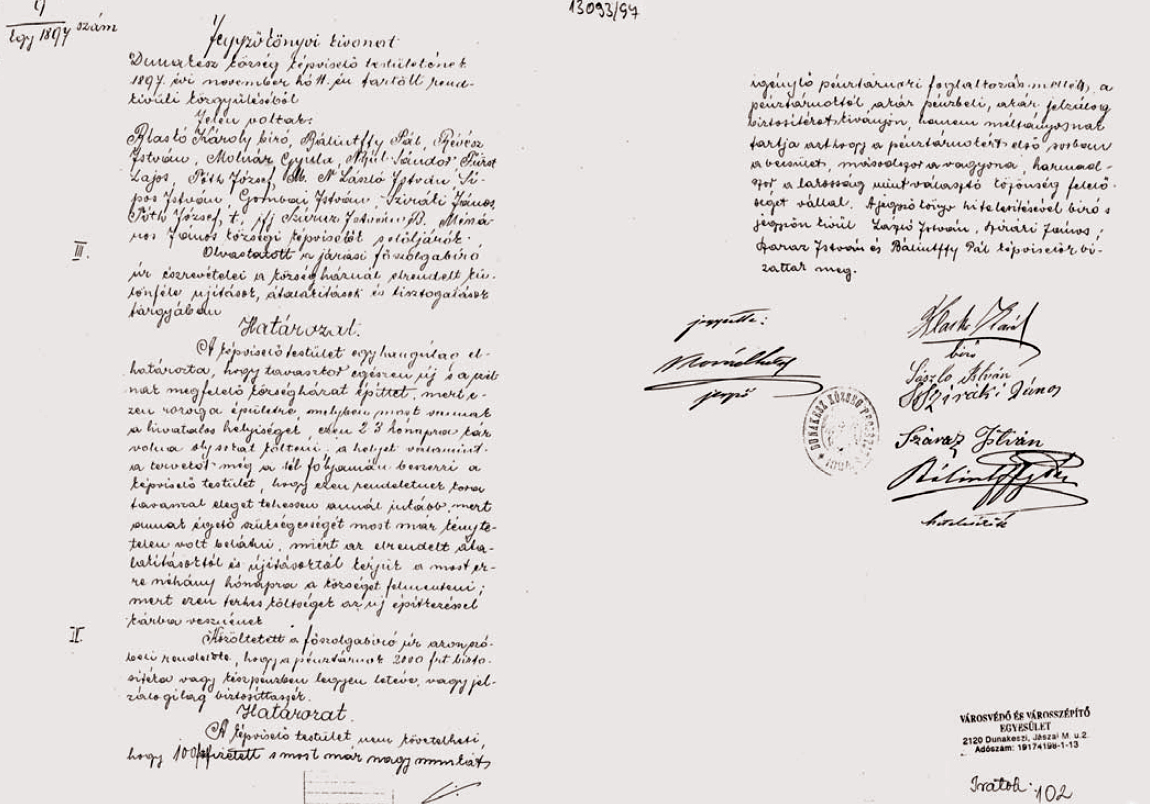 9
Egy 1897 szám
Jegyzőkönyvi kivonat
Dunakesz község képviselő testületének
1897. évi november hó 11.-én tartott rend-
kivüli közgyüléséből
Jelen voltak:
Klaskó Károly biró, Bálintffy Pál, Révész
István, Molnár Gyula, Sándor, Fürst
Lajos, Póth József, N László István, Si-
pos István, Gombai István, Sziráki János,
Póth József, t, ifj Száraz István B.
nos János községi képviselő
III.
Olvastatott a járási főszolgabiró
úr észrevételei a községháznál elrendelt kü-
lönféle ujitások, átalakitások és tisztogatások
tárgyában
Határozat.
A képviselő testület egyhangulag el-
határozta, hogy tavasztól egészen új s a
nak megfelelő községházat épittet, mert e-
zen rozoga épületre, melyben most vannak
a hivatalos helyiségek ezen 2-3 hónapra kár
volna oly sokat költeni, a helyet valamint
a terveket még a tél folyamán beszerzi a
képviselő testület, hogy ezen rendeletnek kora
tavasszal eleget tehessen annál inkább, mert
annak égető szükségességét most már kényte-
telen volt belátni, miért az elrendelt áta-
lakitásoktól és újitásoktól kérjük a most er-
re néhány hónapra a községet felmenteni;
mert ezen terhes költségek az új épitkezéssel
kárba vesznének
II.
Közöltetett a főszolgabiró úr azon szó-
beli rendelete, hogy a pénztárnok 2000 frt bizto-
sitéka vagy készpénzben legyen letéve, vagy jel-
zálogilag biztosittassék.
Határozat.
A képviselő testület nem követelheti,
hogy 100 frt fizetett s most már nagy munkát
13093/97
igénylő pénztárnoki foglalkozás mellett, a
pénztárnoktól akár pénzbeli, akár jelzálog
biztositékot kivánjon, hanem méltányosnak
tartja azt hogy a pénztárnokért első sorban
a becsület, másodszor a vagyona, harmad-
szor a lakosság mint választó közönség felelő-
séget vállal. A jegyző könyv hitelesitésével biró s
jegyzőn kivül László István, Sziráki János,
Száraz István és Bálintffy Pál képviselők bi-
zattak meg.
jegyzette:
jegyző
Klaskó Károly
biró
László István
Sziráki János
Száraz István
Bálintffy Pál
hitelesitők
DUNAKESZ KÖZSÉG
VÁROSVÉDŐ ÉS VÁROSSZÉPÍTŐ
EGYESÜLET
2120 Dunakeszi, Jászai M. u.2.
Adószám: 19174198-1-13
Iratok: 102